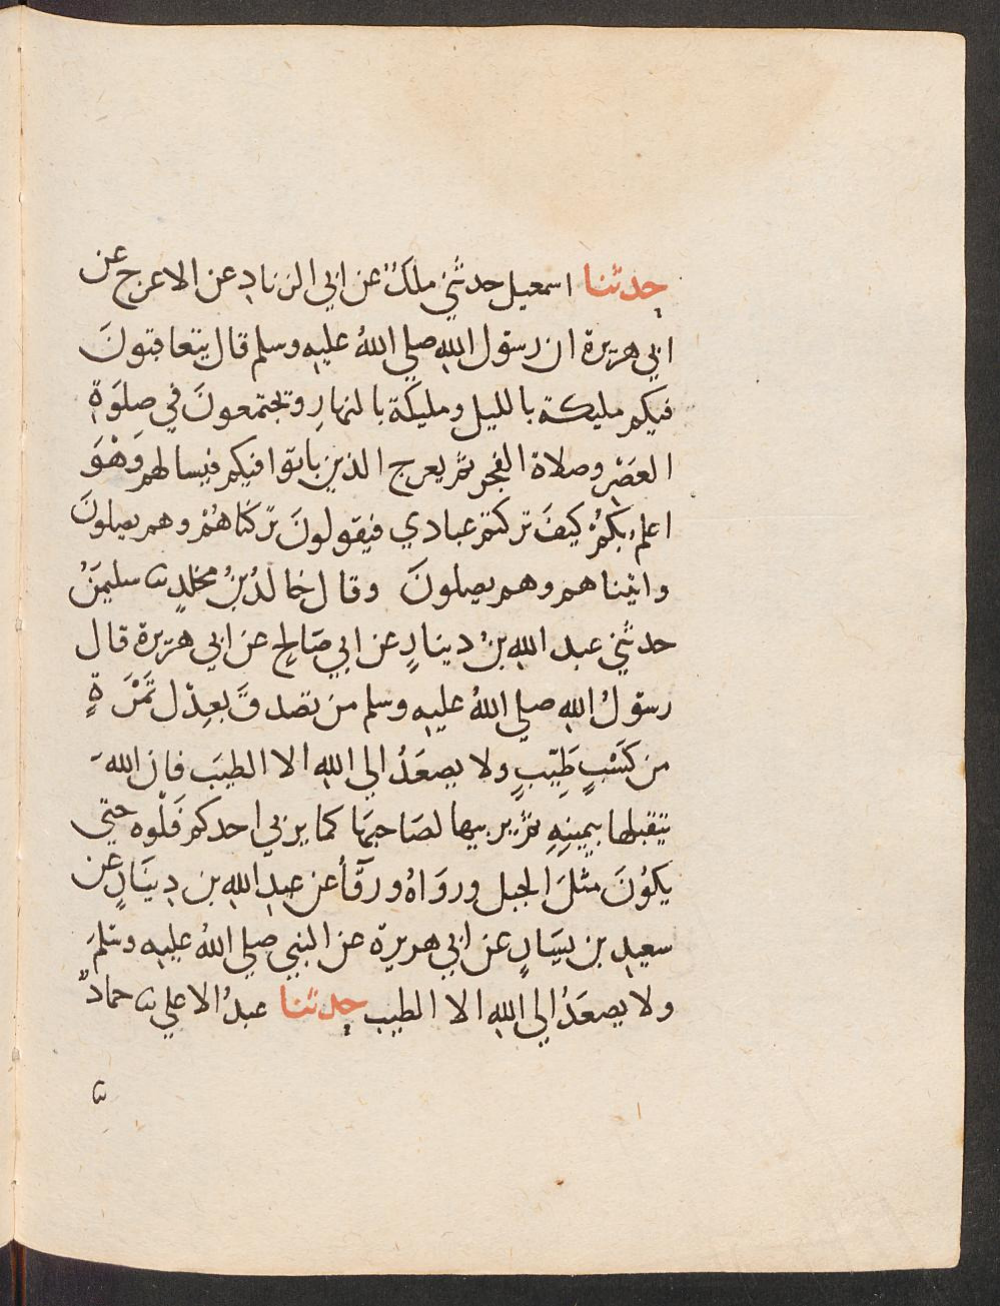 حدثنا اسمعيل حدثني ملك عن ابي الزناد عن الاعرج عن
ابي هريرة ان رسول الله صلي اللهُ عليه وسلم قال يتعاقبونَ
فيكم مليكة بالليل ومليكة بالنهارِ وتجتمعونَ في صلوَةِ
العصْرِ وصلاة الفجر ثم يعرج الذين باتوا فيكم فيسالهم وَهْوَ
اعلم بكُمْ كيفَ تركتم عبادي فيقولونَ تركناهُمْ وهم يصلونَ
واتيناهم وهم يصلونَ وقال خالدُ بنُ مخلدٍ ثنا سليمنُ
حدثني عبد الله بنُ دينارٍ عن ابي صَالحٍ عن ابي هريرة قال
رسولُ الله صلي اللهُ عليه وسلم من تصدقَ بعِدْل تَمْرَةٍ
من كَسْبٍ طَيّبٍ ولا يصعَدُ الي الله الا الطيبَ فان اللهَ
يتقبلها بيمينِهِ ثم يربيها لصَاحبهَا كما يربي احدكم فَلْوه حتي
يكوُنَ مثلَ الجبل وروَاهُ ورقآُ عن عبدِ الله بن دِينَارٍ عن
سعيدِ بن يسَارٍ عن ابي هريرة عن النبي صلي اللهُ عليه وسلمَ
ولا يصعَدُ الي الله الا الطيب حدثنا عبدُ الاعلي ثنا حمادٌ
ثنا